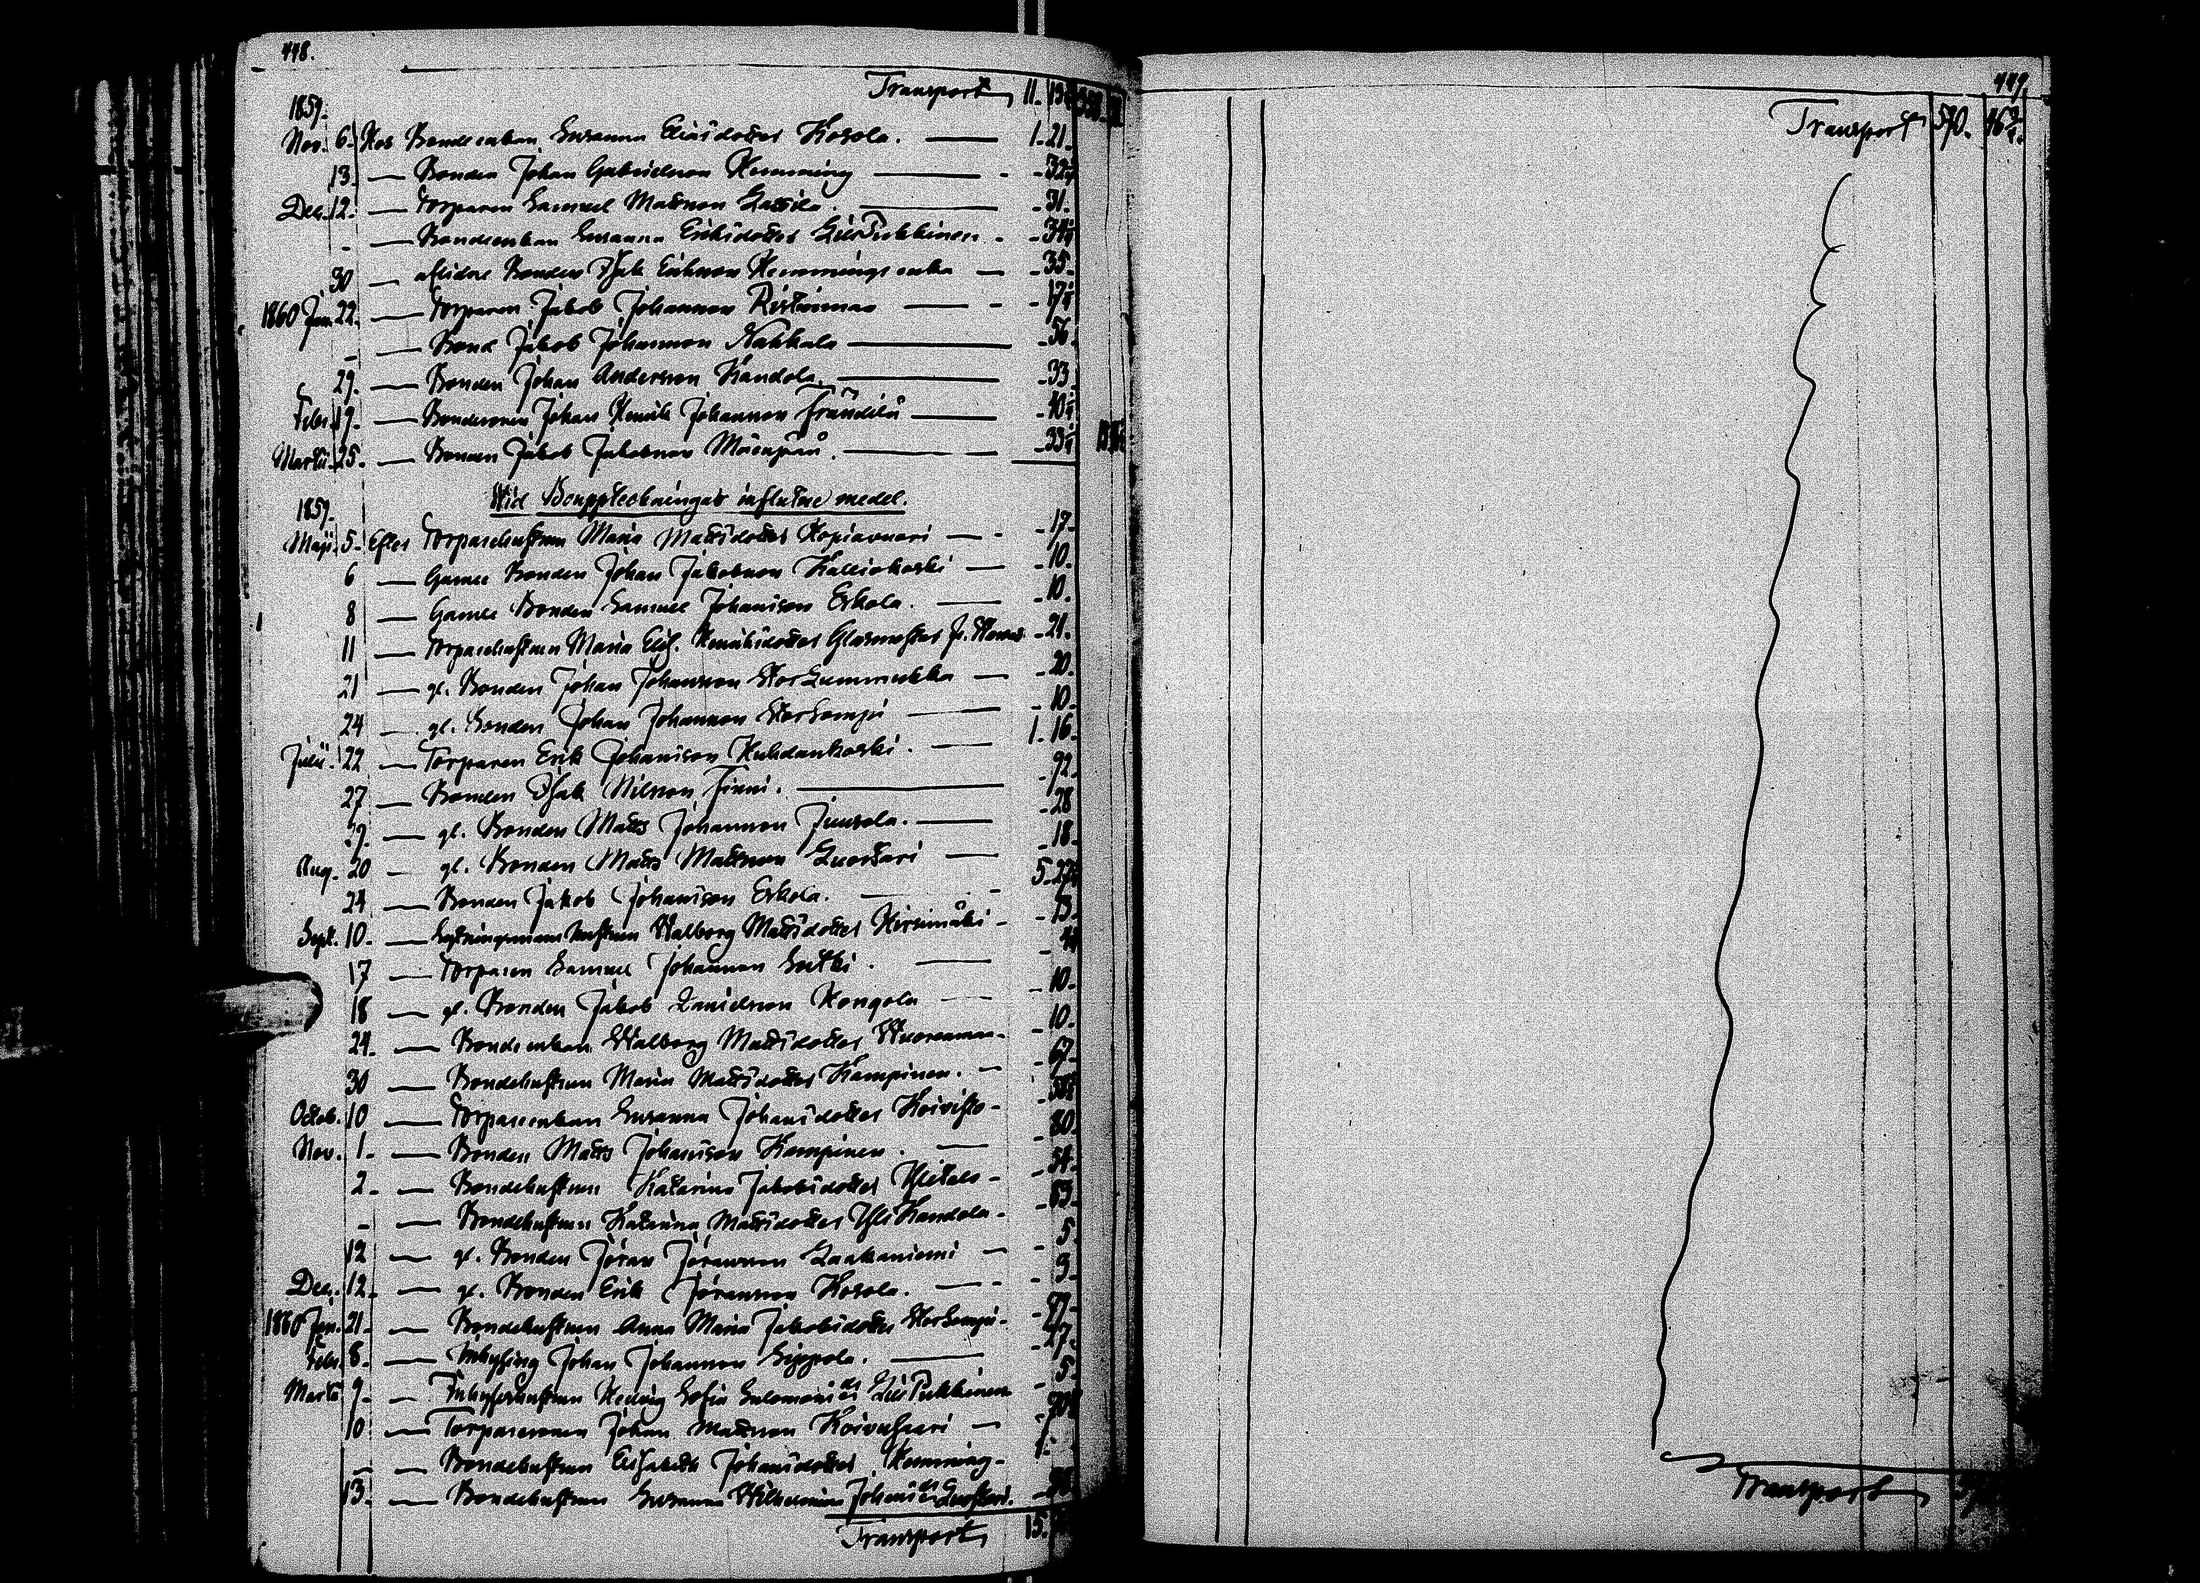 448.
Transport 11.
1859.
Nov. 6. Hos Bondeenkan Susanna Eliasdotter Kosola. — 1. 21.
13. — Bonden Johan Gabrielsson Hemming — - 32
Dec. 12. — Torparen Samuel Mattsson Lassila. — - 31.
- — Bondeenkan Susanna Eriksdotter LillPukkinen - - 34
30 — aflidne Bonden Isak Eriksson Hemmings enka — - 35.
1860 Jan. 22. — Torparen Jakob Johansson Ristimaa — - 17
- — Bond Jakob Johansson Nahkala — - 56.
29. — Bonden Johan Andersson Kandola. — - 33.
Febr. 19. — Bondesonen Johan Henrik Johansson Frändilä — - 40
Martii 25. — Bonden Jakob Jakobsson Mäenpää. — - 33
Wid Bouppteckningar influtne medel.
1859.
Maji 5. Efter Torparehustrun Maria Mattsdotter Kopiavuori — - 17.
6 — Gamle Bonden Johan Jakobsson Kalliokoski — - 10.
8 — Gamle Bonden Samuel Johansson Erkola. — - 10.
11 — Torparehustrun Maria Elis. Henriksdotter Glasmästar - 21.
21 — gl. Bonden Johan Johansson StorLummukka — - 20.
24 — gl. Bonden Johan Johansson StorLempi — - 10.
Julii. 22 — Torparen Erik Johansson Huhdankoski. — 1. 16.
27 — Bonden Isak Nilsson Finni. — - 92.
29. — gl. Bonden Matts Johansson Juurola. — - 28
Aug. 20 — gl. Bonden Matts Mattsson Luostari — - 18.
24 — Bonden Jakob Johansson Erkola. — 5. 27
Sept. 10. — Sytningsmans hustrun Walborg Mattsdotter Hirsimäki - - 13.
17 — Torparen Samuel Johansson Sutki. — - 4
18 — gl. Bonden Jakob Danielsson Hongola — - 10.
24. — Bondeenkan Walborg Mattsdotter Wuorenmaa - - 10.
30 — Bondehustrun Maria Mattsdotter Kampinen. — - 67.
Octob. 10 — Torpareenkan Susanna Johansdotter Koivisto -
Nov. 1. — Bonden Matts Johansson Kampinen. — - 80.
2. — Bondehustrun Katarina Jakobsdotter Ylitalo - - 54.
- — Bondehustrun Katarina Mattsdotter YliKandola - - 83.
12 — gl. Bonden Jöran Jöransson Laakaniemi — - 5.
Dec. 12. — gl. Bonden Erik Jöransson Kosola. — - 3.
1860 Jan. 21. — Bondehustrun Anna Maria Jakobsdotter StorLempi -
Febr. 8. — Inhysing Johan Johansson Sippola. — - 27.
Martii 9. — Inhyseshustrun Hedvig Sofia Salomonsdr LillPukkinen - 5.
10. — Torparesonen Johan Mattsson Koivusaari —
- — Bondehustrun Elisabeth Johansdotter Hemming -
13. — Bondehustrun Susanna Wilhelmina Johansdr Luostari.
Transport 15.
449.
Transport 570. 46
Transport